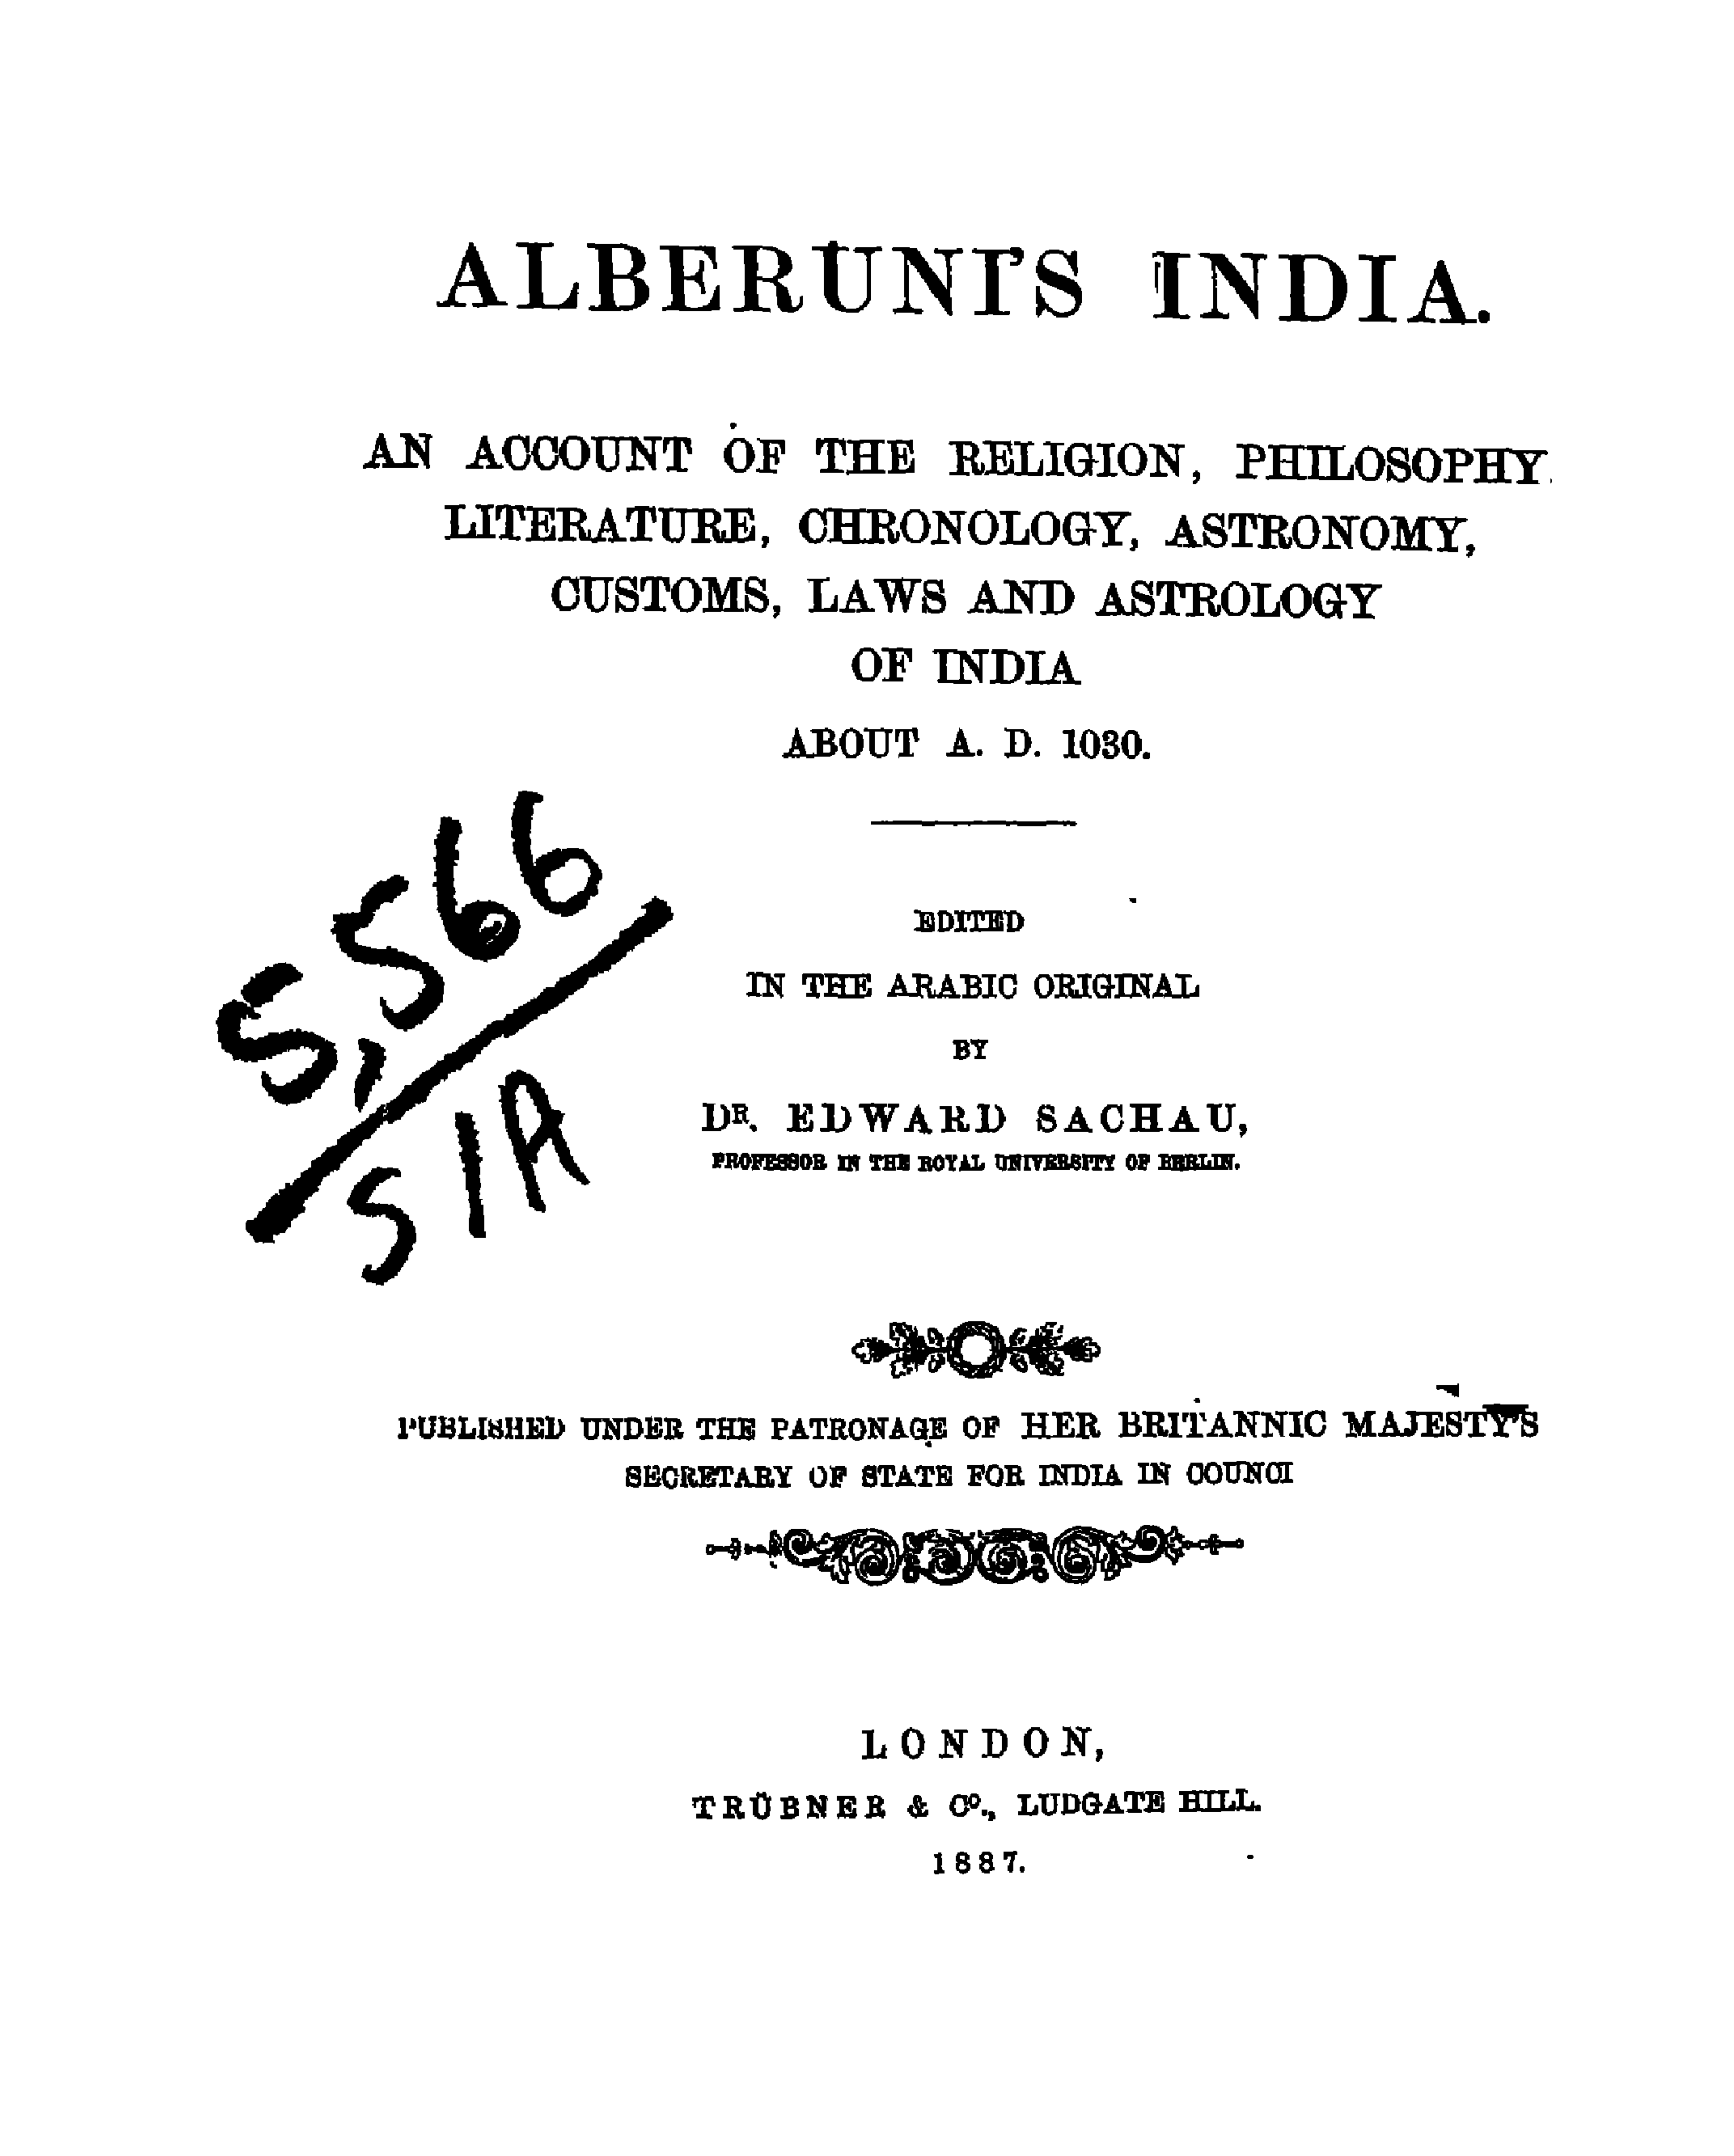 ALBERUNI'S INDIA.
AN ACCOUNT OF THE RELIGION, PHILOSOPHY.
LITERATURE, CHRONOLOGY, ASTRONOMY,
CUSTOMS, LAWS AND ASTROLOGY
OF INDIA
ABOUT A. D. 1030.
5,566
S/A
EDITED
IN THE ARABIC ORIGINAL
BY
DR. EDWARD SACHAU,
PROFESSOR IN THE ROYAL UNIVERSITY OF BERLIN.
PUBLISHED UNDER THE PATRONAGE OF HER BRITANNIC MAJESTY'S
SECRETARY OF STATE FOR INDIA IN COUNCI
LONDON,
TRÜBNER & Co., LUDGATE HILL.
1887.